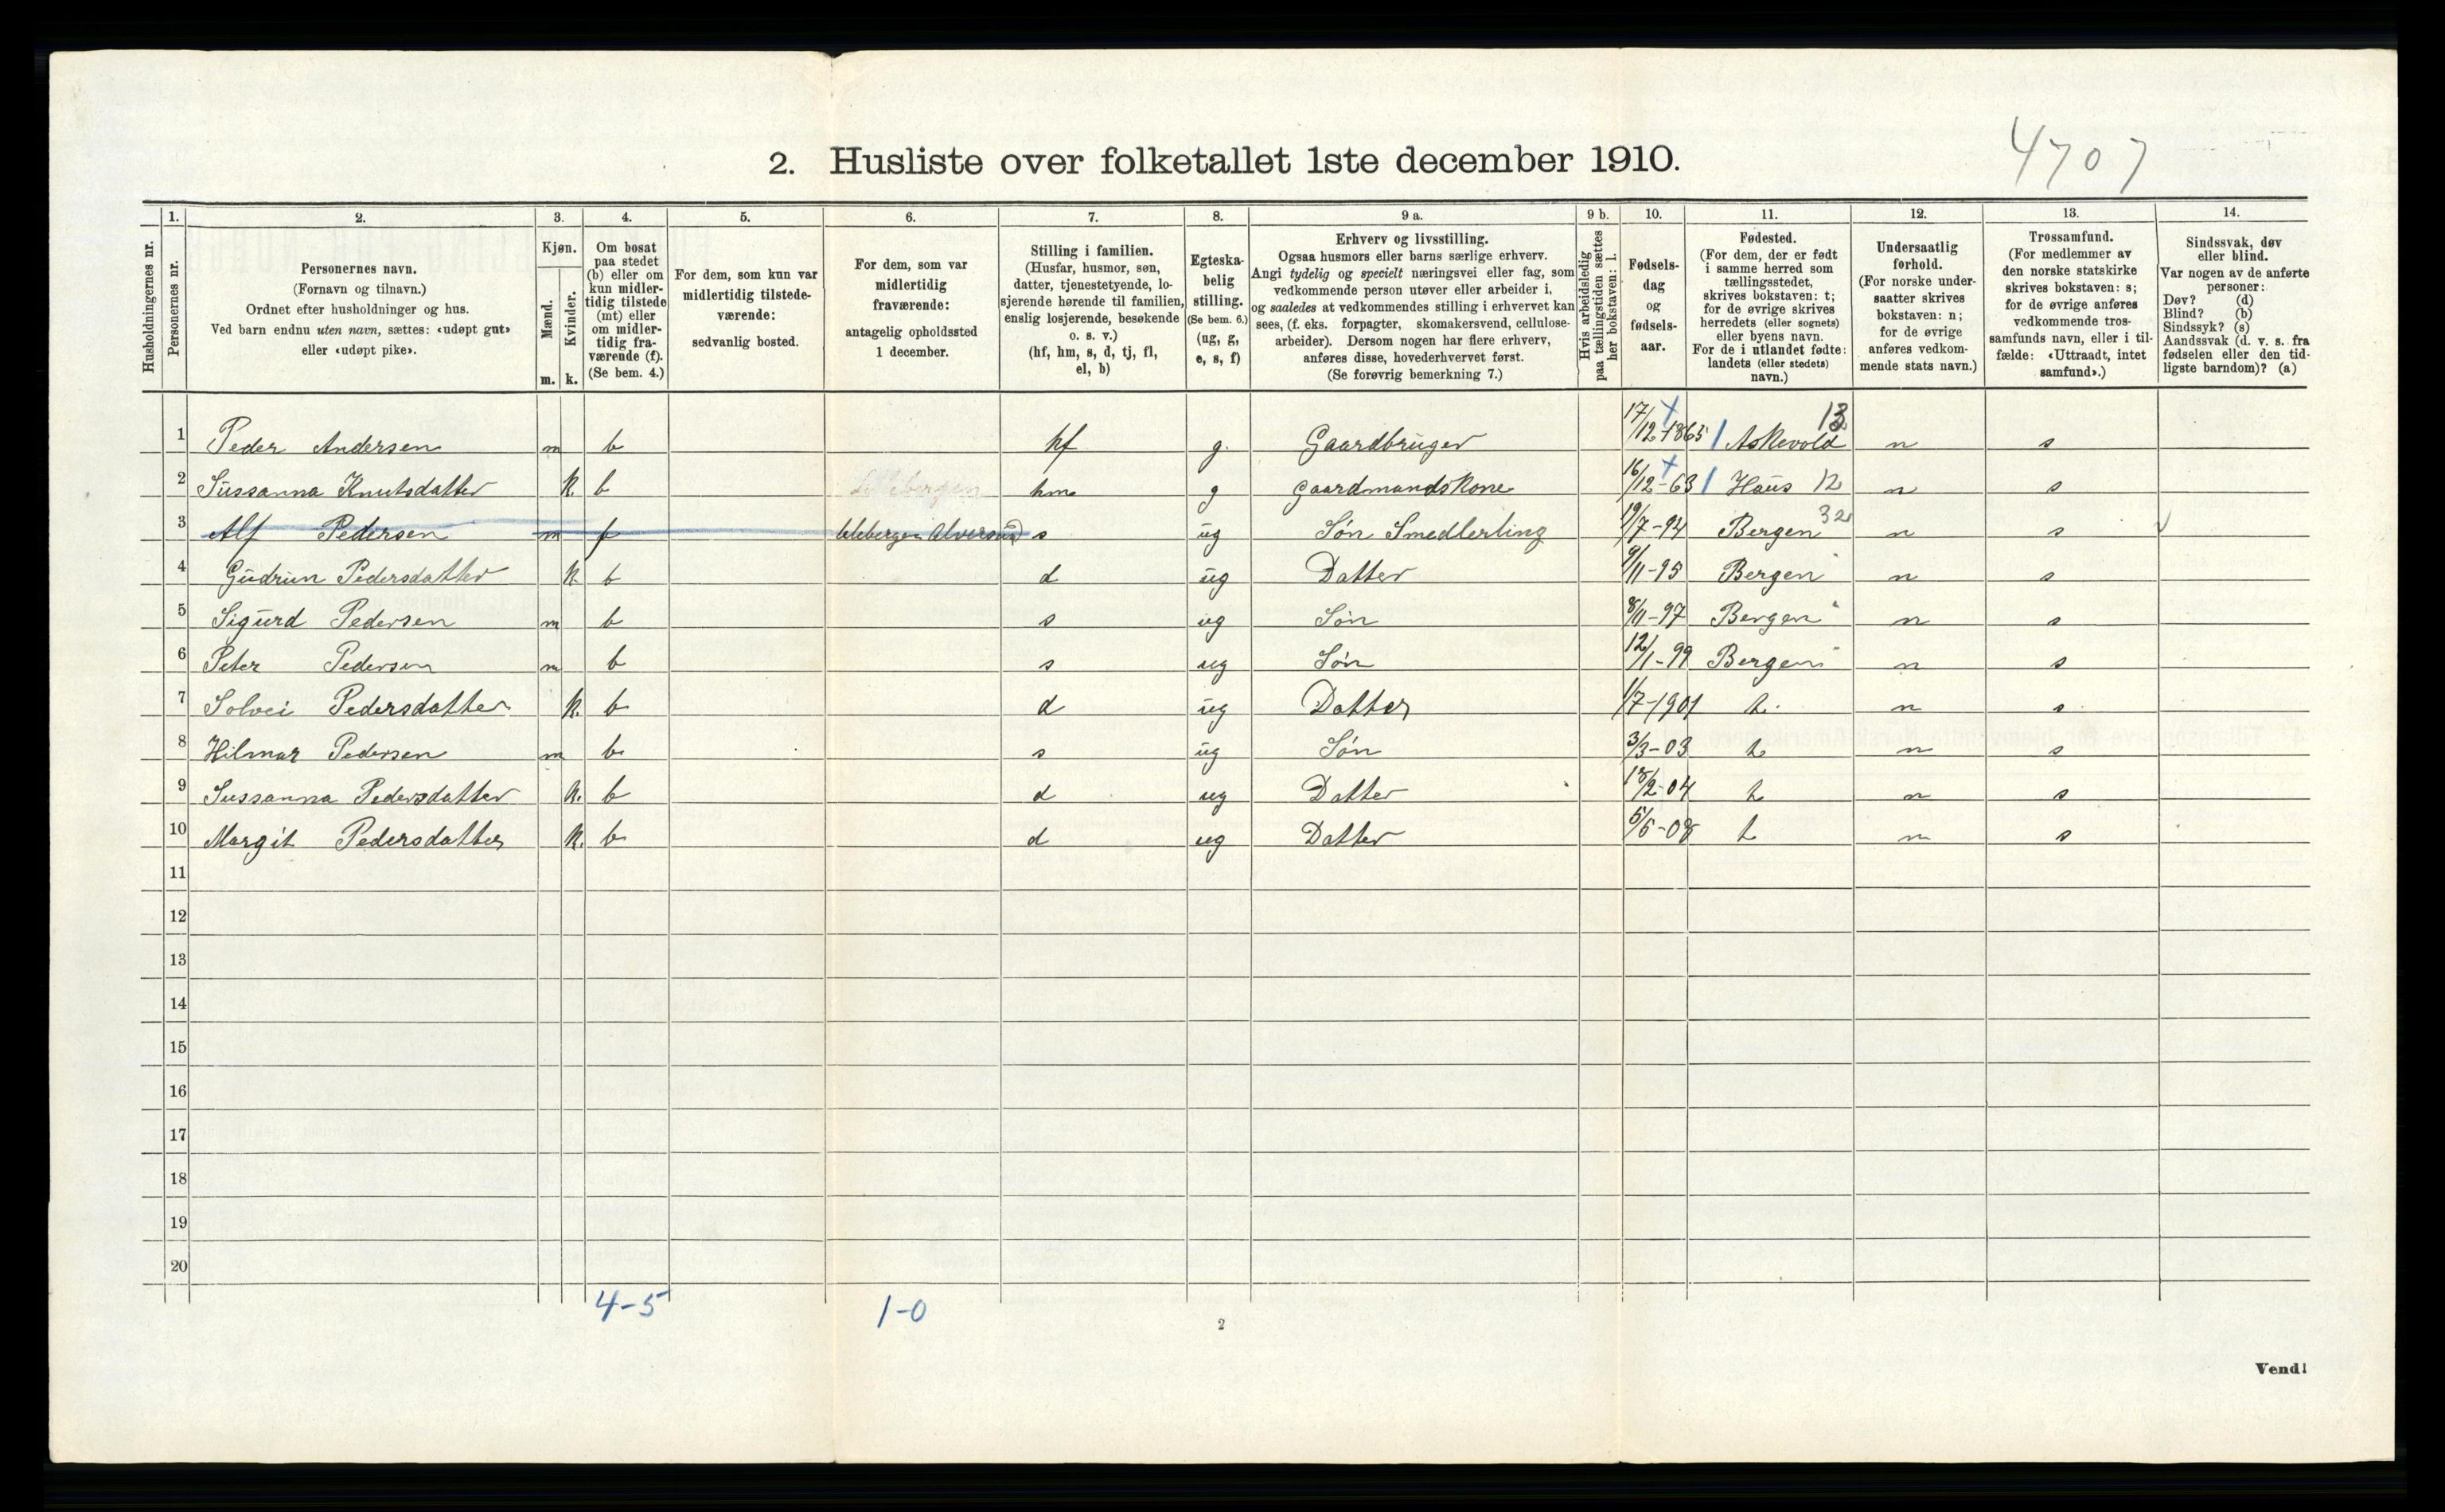 4707
2. Husliste over folketallet 1ste december 1910.
Husholdningernes nr.
1.
Personernes nr.
2.
Personernes navn.
(Fornavn og tilnavn.)
Ordnet efter husholdninger og hus.
Ved barn endnu uten navn, sættes: «udøpt gut»
eller «udøpt pike».
3.
Kjøn.
Mænd.
m.
Kvinder.
k.
4.
Om bosat
paa stedet
(b) eller om
kun midler-
tidig tilstede
(mt) eller
om midler-
tidig fra-
værende (f).
(Se bem. 4.)
5.
For dem, som kun var
midlertidig tilstede-
værende:
sedvanlig bosted.
6.
For dem, som var
midlertidig
fraværende:
antagelig opholdssted
1 december.
7.
Stilling i familien.
(Husfar, husmor, søn,
datter, tjenestetyende, lo-
sjerende hørende til familien,
enslig losjerende, besøkende
o. s. v.)
(hf, hm, s, d, tj, fl,
el, b)
8.
Egteska-
belig
stilling.
(Se bem. 6.)
(ug, g,
e, s, f)
9 a.
Erhverv og livsstilling.
Ogsaa husmors eller barns særlige erhverv.
Angi tydelig og specielt næringsvei eller fag, som
vedkommende person utøver eller arbeider i,
og saaledes at vedkommendes stilling i erhvervet kan
sees, (f. eks. forpagter, skomakersvend, cellulose-
arbeider). Dersom nogen har flere erhverv,
anføres disse, hovederhvervet først.
(Se forøvrig bemerkning 7.)
9 b.
Hvis arbeidsledig
paa tællingstiden sættes
her bokstaven: l.
10.
Fødsels-
dag
og
fødsels-
aar.
11.
Fødested.
(For dem, der er født
i samme herred som
tællingsstedet,
skrives bokstaven: t;
for de øvrige skrives
herredets (eller sognets)
eller byens navn.
For de i utlandet fødte:
landets (eller stedets)
navn.)
12.
Undersaatlig
forhold.
(For norske under-
saatter skrives
bokstaven: n;
for de øvrige
anføres vedkom-
mende stats navn.)
13.
Trossamfund.
(For medlemmer av
den norske statskirke
skrives bokstaven: s;
for de øvrige anføres
vedkommende tros-
samfunds navn, eller i til-
fælde: «Uttraadt, intet
samfund».)
14.
Sindssvak, døv
eller blind.
Var nogen av de anførte
personer:
Døv? (d)
Blind? (b)
Sindssyk? (s)
Aandssvak (d. v. s. fra
fødselen eller den tid-
ligste barndom)? (a)
1 Peder Andersen m b hf g. Gaardbruger 17/12-1865 Askevold 13 n s
2 Sussanna Knutsdatter k. b hm g Gaardmandskone 16/12-63 Haus 12 n s
3 Alf Pedersen m f s ug Søn Smedlerling 19/7-94 Bergen 32 n s
4 Gudrun Pedersdatter k b d ug Datter 9/11-95 Bergen n s
5 Sigurd Pedersen m b s ug Søn 8/11-97 Bergen n s
6 Peter Pedersen m b s ug Søn 12/1-99 Bergen n s
7 Solvei Pedersdatter k. b d ug Datter 1/7-1901 t. n s
8 Hilmar Pedersen m b s ug Søn 3/3-03 t n s
9 Sussanna Pedersdatter k. b d ug Datter 18/2-04 t n s
10 Margit Pedersdatter k. b d ug Datter 5/6-08 t n s
11
12
13
14
15
16
17
18
19
20
4-5 1-0
2
Vend!